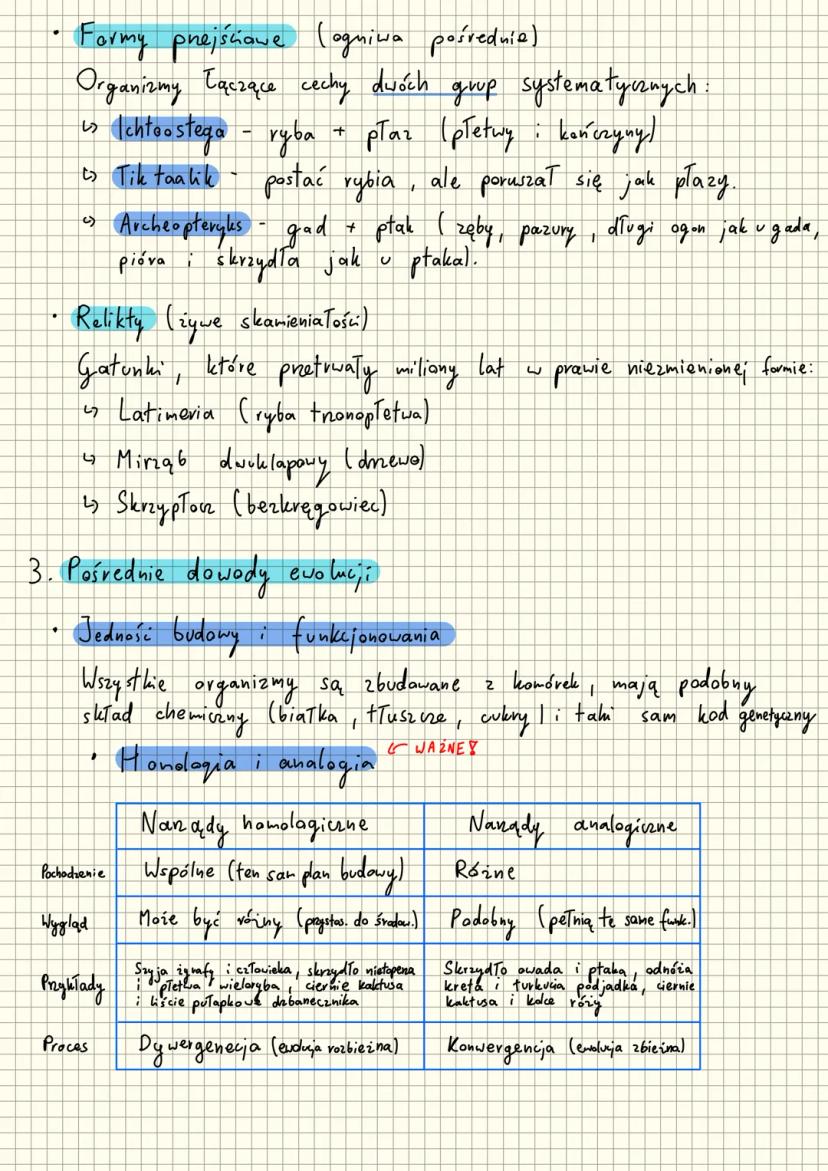 • Formy przejściowe (ogniwa pośrednie)
Organizmy łączące cechy dwóch grup systematycznych:
↳ Ichtiostega - ryba + płaz (płetwy i kończyny)
↳ Tiktaalik - postać rybia, ale poruszał się jak płazy.
↳ Archeopteryks - gad + ptak (zęby, pazury, długi ogon jak u gada,
pióra i skrzydła jak u ptaka).
• Relikty (żywe skamieniałości)
Gatunki, które przetrwały miliony lat w prawie niezmienionej formie:
↳ Latimeria (ryba trzonopłetwa)
↳ Mirząb dwuklapowy (drzewo)
↳ Skrzypłocz (bezkręgowiec)
3. Pośrednie dowody ewolucji
• Jedność budowy i funkcjonowania
Wszystkie organizmy są zbudowane z komórek, mają podobny
skład chemiczny (białka, tłuszcze, cukry) i taki sam kod genetyczny
• Homologia i analogia ← WAŻNE!
Narządy homologiczne Narządy analogiczne
Pochodzenie Wspólne (ten sam plan budowy) Różne
Wygląd Może być różny (przystos. do środow.) Podobny (pełnią te same funk.)
Przykłady
Szyja żyrafy i człowieka, skrzydło nietoperza
i płetwa wieloryba, ciernie kaktusa
i liście pułapkowe dzbanecznika
Skrzydło owada i ptaka, odnóża
kreta i turkucia podjadka, ciernie
kaktusa i kolce róży
Proces Dywergenecja (ewolucja rozbieżna) Konwergencja (ewolucja zbieżna)